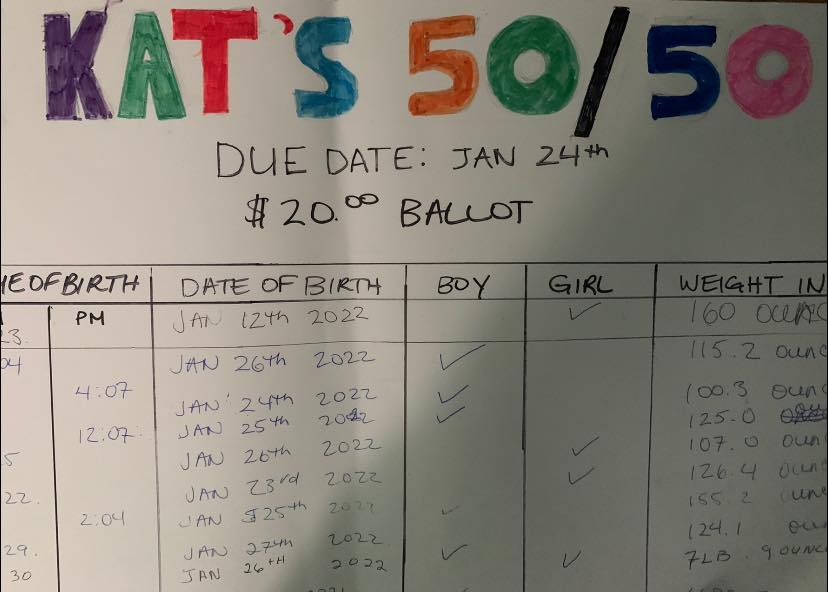 KAT'S 50/50
DUE DATE: JAN 24th
$20.00 BALLOT
DATE OF BIRTH BOY GIRL WEIGHT IN
PM JAN 12th 2022 ✓ 160
23.
04 JAN 26th 2022 ✓ 115.2
4:07 JAN 24th 2022 ✓ 100.3
12:07 JAN 25th 2022 ✓ 125.0
5 JAN 26th 2022 ✓ 107.0
JAN 23rd 2022 ✓ 126.4
22. 155.2
2:04 JAN 25th 2022 ✓ 124.1
29. JAN 27th 2022 ✓ 7LB. 9
30 JAN 26TH 2022 ✓